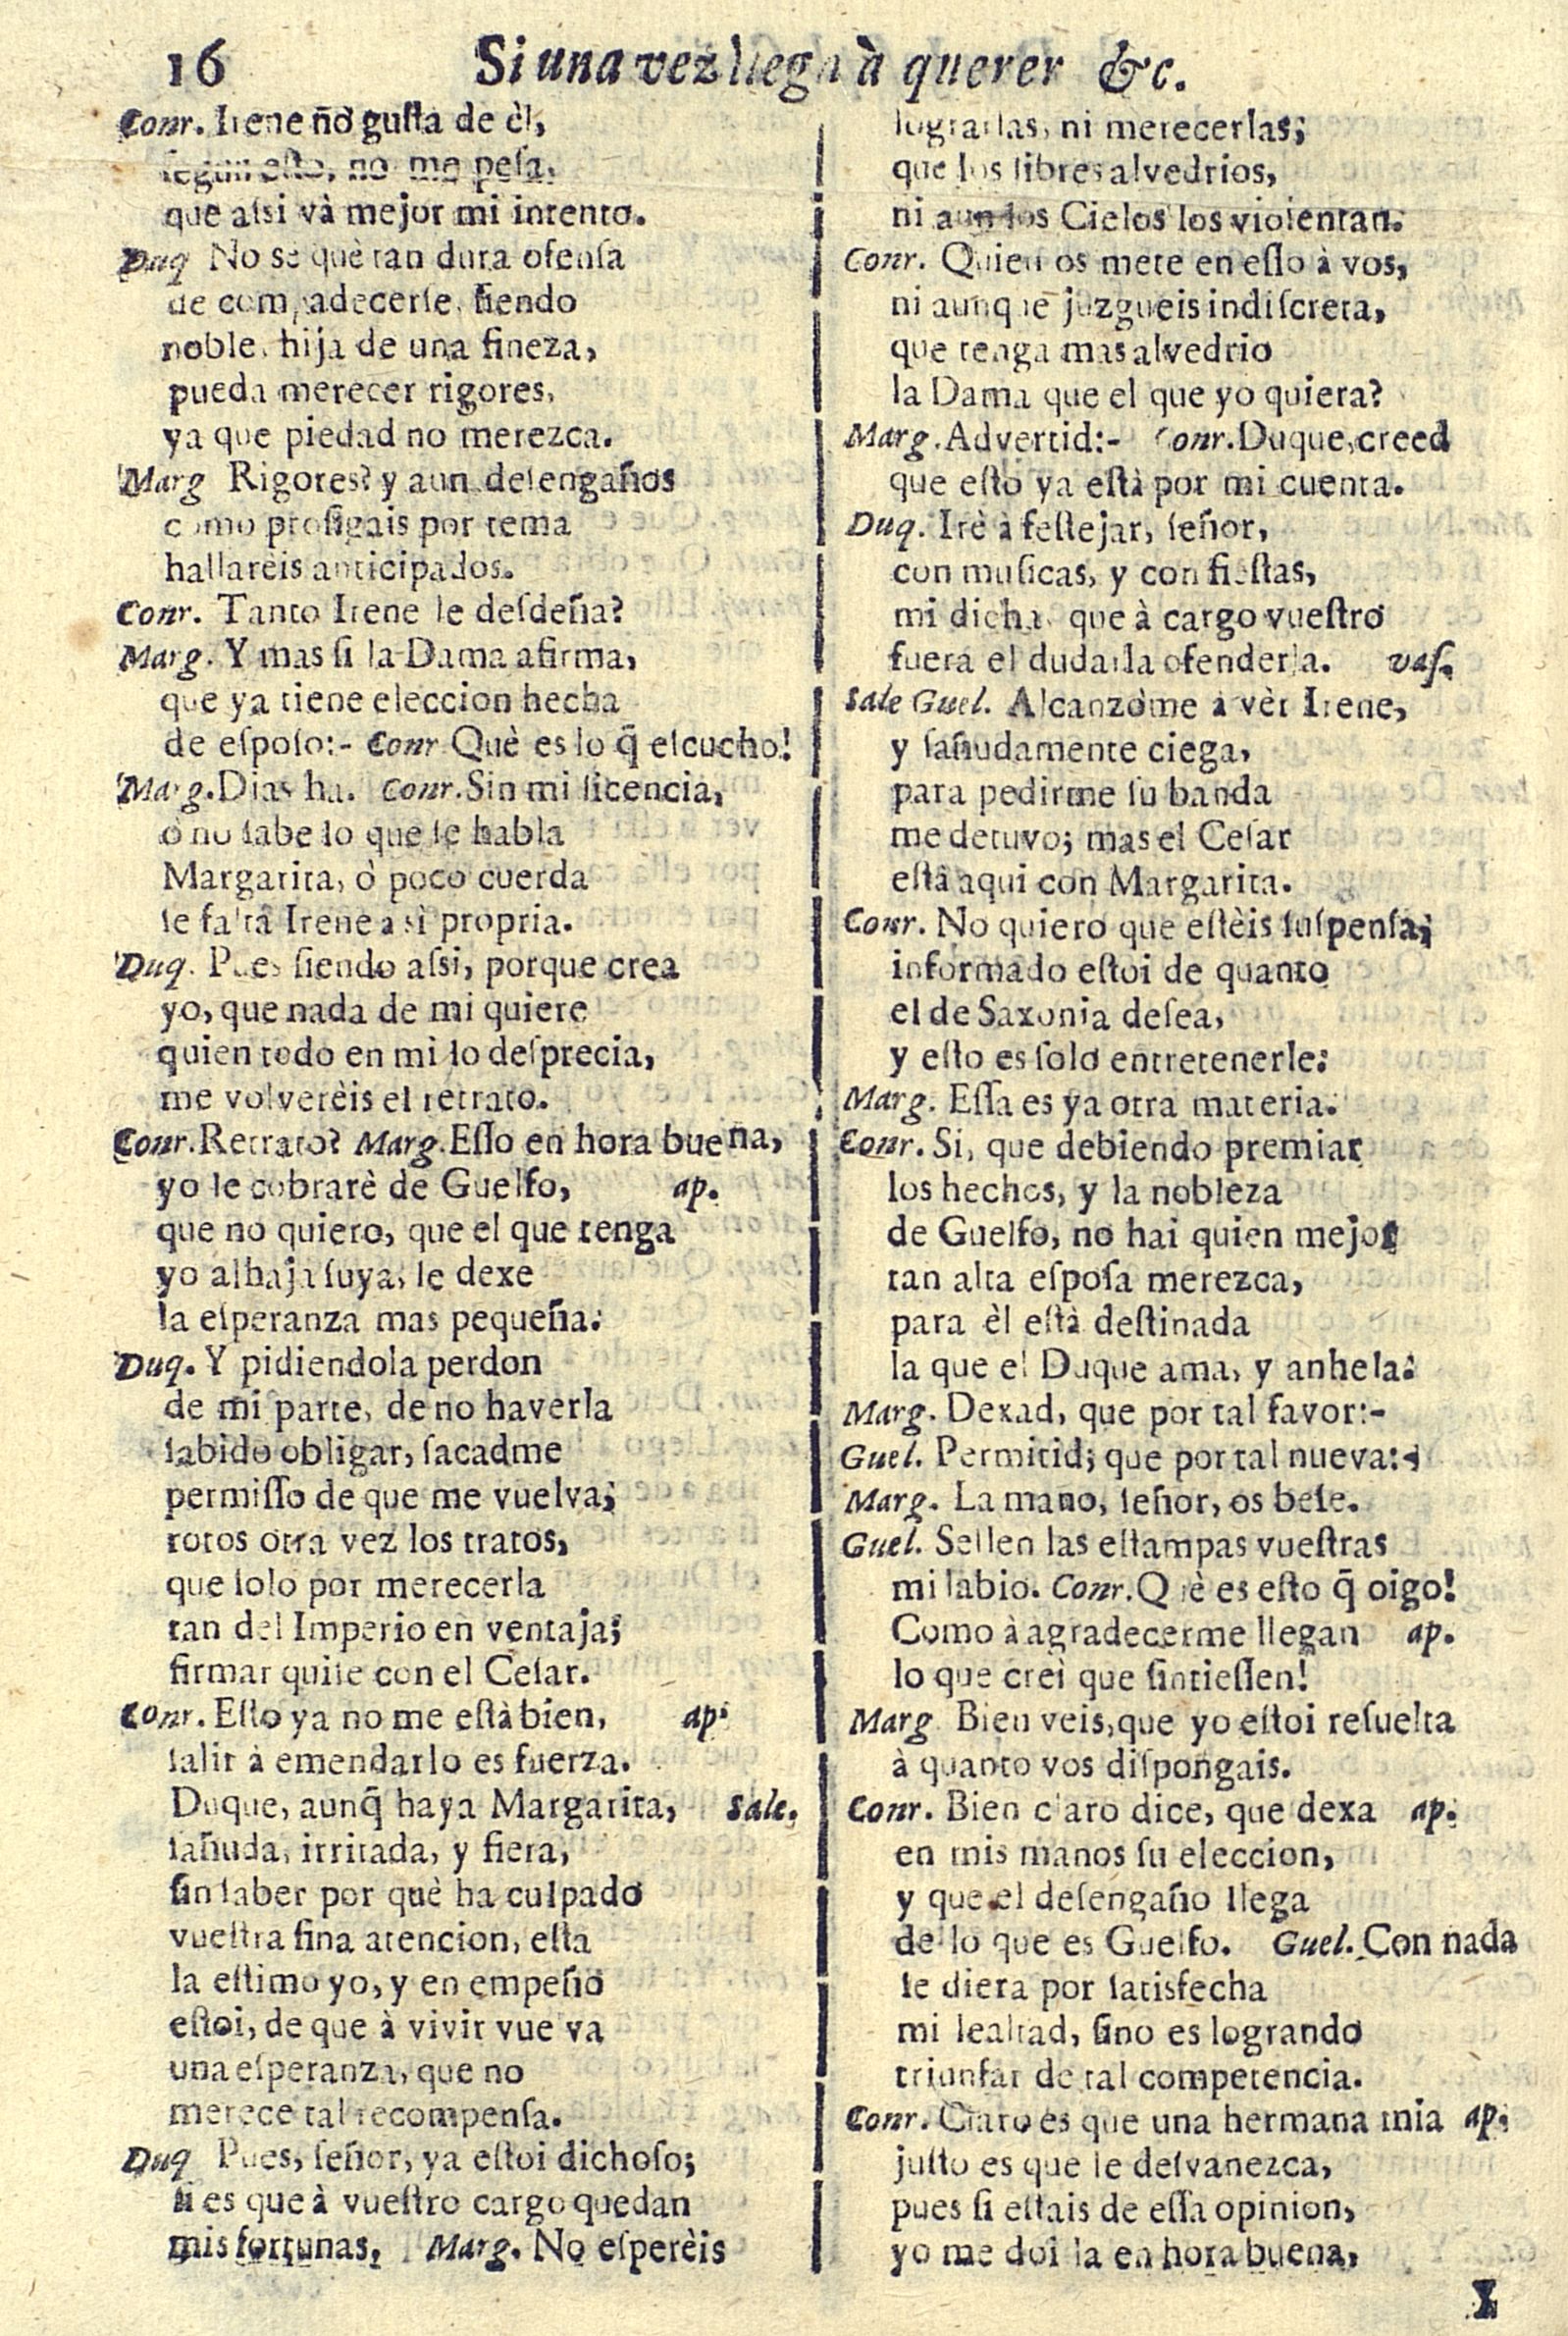 16 Si una vez llega à querer &c.
Conr. Irene ño gusta de èl,
segun esto, no me pesa,
que assi và mejor mi intento.
Duq No sè què tan dura ofensa
de compadecerse, siendo
noble, hija de una fineza,
pueda merecer rigores,
ya que piedad no merezca.
Marg Rigores? y aun desengaños
como prosigais por tema
hallarèis anticipados.
Conr. Tanto Irene le desdeña?
Marg. Y mas si la Dama afirma,
que ya tiene eleccion hecha
de esposo:- Conr Què es lo q̃ escucho!
Marg. Dias ha. Conr. Sin mi licencia,
ò no sabe lo que se habla
Margarita, ò poco cuerda
se falta Irene a sì propria.
Duq. Pues siendo assi, porque crea
yo, que nada de mi quiere
quien todo en mi lo desprecia,
me volverèis el retrato.
Conr. Retrato? Marg. Esso en hora buena,
yo le cobrarè de Guelfo, ap.
que no quiero, que el que tenga
yo alhaja suya, le dexe
la esperanza mas pequeña.
Duq. Y pidiendola perdon
de mi parte, de no haverla
sabido obligar, sacadme
permisso de que me vuelva;
rotos otra vez los tratos,
que solo por merecerla
tan del Imperio en ventaja;
firmar quise con el Cesar.
Conr. Esto ya no me està bien, ap.
salir à emendarlo es fuerza.
Duque, aunq̃ haya Margarita, Sale.
sañuda, irritada, y fiera,
sin saber por què ha culpado
vuestra fina atencion, esta
la estimo yo, y en empeño
estoi, de que à vivir vue va
una esperanza, que no
merece tal recompensa.
Duq Pues, señor, ya estoi dichoso;
si es que à vuestro cargo quedan
mis fortunas, Marg. No esperèis
lograrlas, ni merecerlas;
que los libres alvedrios,
ni aun los Cielos los violentan.
Conr. Quien os mete en esso à vos,
ni aunque juzgueis indiscreta,
que tenga mas alvedrio
la Dama que el que yo quiera?
Marg. Advertid:- Conr. Duque, creed
que esto ya està por mi cuenta.
Duq. Irè à festejar, señor,
con musicas, y con fiestas,
mi dicha, que à cargo vuestro
fuera el dudarla ofenderla. vas.
Sale Guel. Alcanzòme à vèr Irene,
y sañudamente ciega,
para pedirme su banda
me detuvo; mas el Cesar
està aqui con Margarita.
Conr. No quiero que estèis suspensa;
informado estoi de quanto
el de Saxonia desea,
y esto es solo entretenerle:
Marg. Essa es ya otra materia.
Conr. Si, que debiendo premiar
los hechos, y la nobleza
de Guelfo, no hai quien mejor
tan alta esposa merezca,
para èl està destinada
la que el Duque ama, y anhela:
Marg. Dexad, que por tal favor:-
Guel. Permitid; que por tal nueva:-
Marg. La mano, señor, os bese.
Guel. Sellen las estampas vuestras
mi labio. Conr. Què es esto q̃ oigo!
Como à agradecerme llegan ap.
lo que creì que sintiessen!
Marg Bien veis, que yo estoi resuelta
à quanto vos dispongais.
Conr. Bien claro dice, que dexa ap.
en mis manos su eleccion,
y que el desengaño llega
de lo que es Guelfo. Guel. Con nada
se diera por satisfecha
mi lealtad, sino es logrando
triunfar de tal competencia.
Conr. Claro es que una hermana mia ap.
justo es que se desvanezca,
pues si estais de essa opinion,
yo me doi la en hora buena,
I